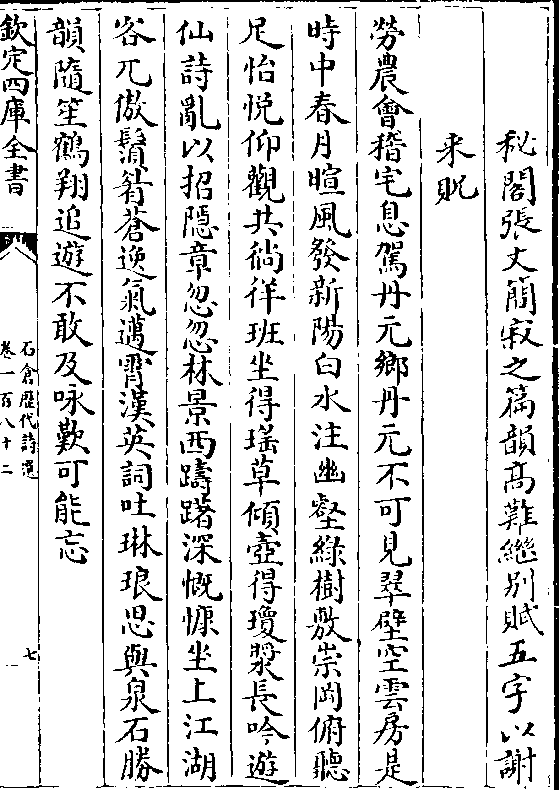 秘閣張丈簡寂之篇韻髙難繼别賦五字以謝
来貺
勞農會稽宅息駕丹元鄉丹元不可見翠壁空雲房是
時中春月暄風發新陽白水注幽壑綠樹敷崇岡俯聽
足怡悅仰觀共徜徉班坐得瑤草傾壺得瓊漿長吟遊
仙詩亂以招隱章忽忽林景西躊躇深慨慷坐上江湖
客兀傲鬢眉蒼逸氣邁霄漢英詞吐琳琅思與泉石勝
韻隨笙鶴翔追遊不敢及咏歎可能忘
欽定四庫全書
石倉歷代詩選
卷一百八十二
七